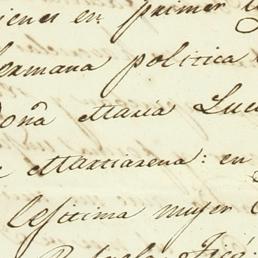 ienes en primer
hermana politica
Doña Maria Luc
Martiarena: en
lejitima mujer